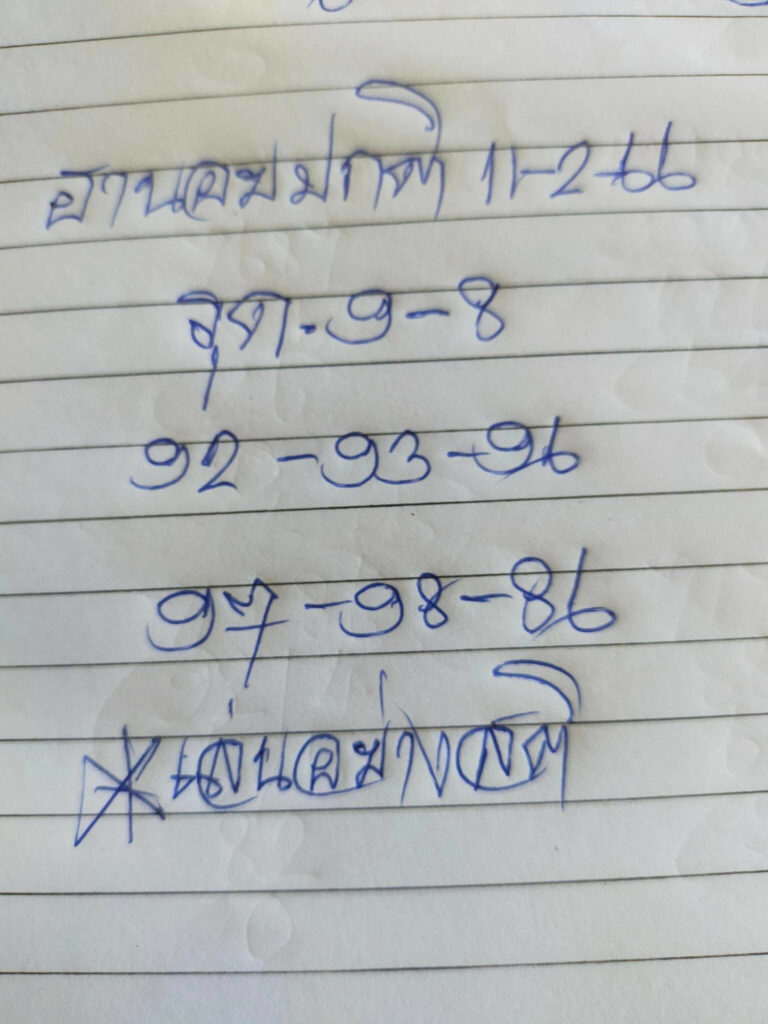 ฮานอยปกติ 11-2-66
จุด.9-8
92-93-96
97-98-86
*เล่นอย่างสติ